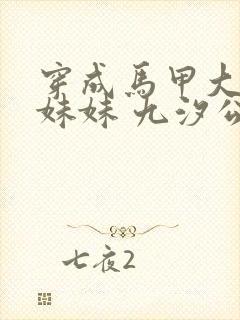 穿成馬甲大
妹妹 九汐公
七夜2